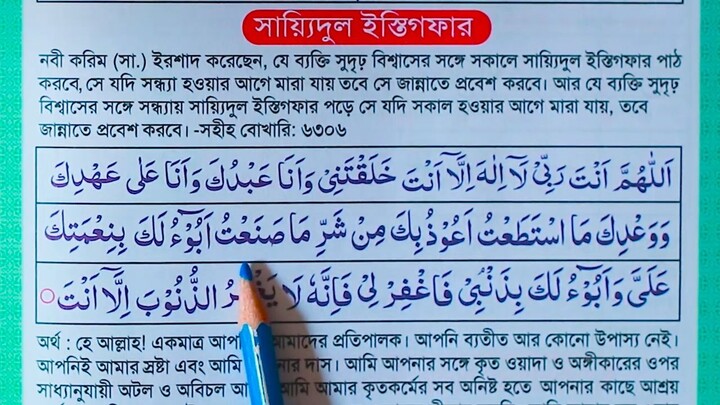 সায়্যিদুল ইস্তিগফার
নবী করিম (সা.) ইরশাদ করেছেন, যে ব্যক্তি সুদৃঢ় বিশ্বাসের সঙ্গে সকালে সায়্যিদুল ইস্তিগফার পাঠ
করবে, সে যদি সন্ধ্যা হওয়ার আগে মারা যায় তবে সে জান্নাতে প্রবেশ করবে। আর যে ব্যক্তি সুদৃঢ়
বিশ্বাসের সঙ্গে সন্ধ্যায় সায়্যিদুল ইস্তিগফার পড়ে সে যদি সকাল হওয়ার আগে মারা যায়, তবে
জান্নাতে প্রবেশ করবে। -সহীহ বোখারি: ৬৩০৬
اَللّٰهُمَّ اَنْتَ رَبِّىْ لَاۤ اِلٰهَ اِلَّاۤ اَنْتَ خَلَقْتَنِىْ وَاَنَا عَبْدُكَ وَاَنَا عَلٰى عَهْدِكَ
وَوَعْدِكَ مَا اسْتَطَعْتُ اَعُوْذُ بِكَ مِنْ شَرِّ مَا صَنَعْتُ اَبُوْٓءُ لَكَ بِنِعْمَتِكَ
عَلَىَّ وَاَبُوْٓءُ لَكَ بِذَنْۢبِىْ فَاغْفِرْ لِىْ فَاِنَّهٗ لَا الذُّنُوْبَ اِلَّاۤ اَنْتَ
অর্থ : হে আল্লাহ! একমাত্র আমাদের প্রতিপালক। আপনি ব্যতীত আর কোনো উপাস্য নেই।
আপনিই আমার স্রষ্টা এবং আমি দাস। আমি আপনার সঙ্গে কৃত ওয়াদা ও অঙ্গীকারের ওপর
সাধ্যানুযায়ী অটল ও অবিচল আমি আমার কৃতকর্মের সব অনিষ্ট হতে আপনার কাছে আশ্রয়